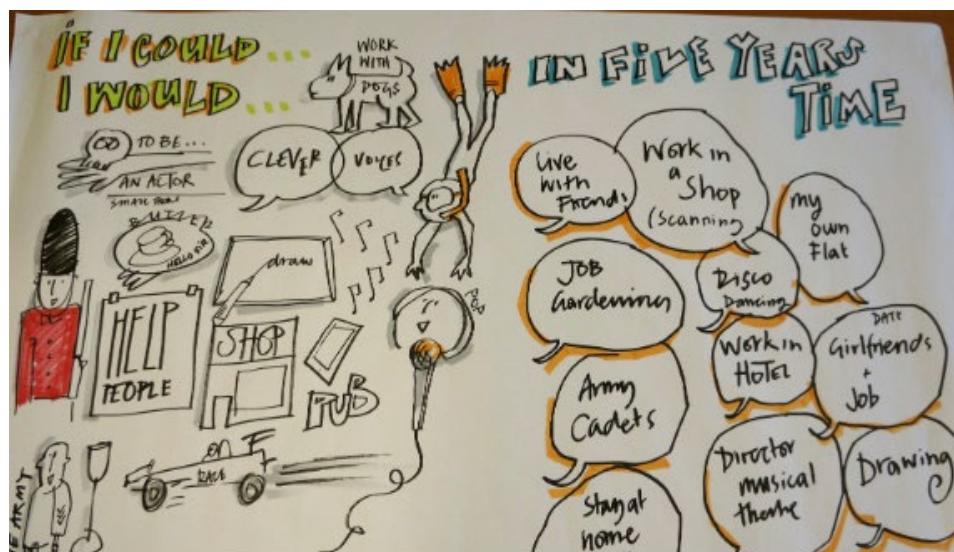 IF I COULD...
I WOULD...
WORK
WITH
DOGS
TO BE...
AN ACTOR
CLEVER
VOICES
BUTLER
HELLO SIR
draw
HELP
PEOPLE
SHOP
PUB
POP
F
RACE
ARMY
IN FIVE YEARS
TIME
Live
with
Friends
Work in
a
Shop
(scanning
my
own
Flat
JOB
Gardening
Disco
Dancing
Work in
HOTEL
DATE
Girlfriends
+
Job
Army
Cadets
Director
musical
theatre
Drawing
Stay at
home